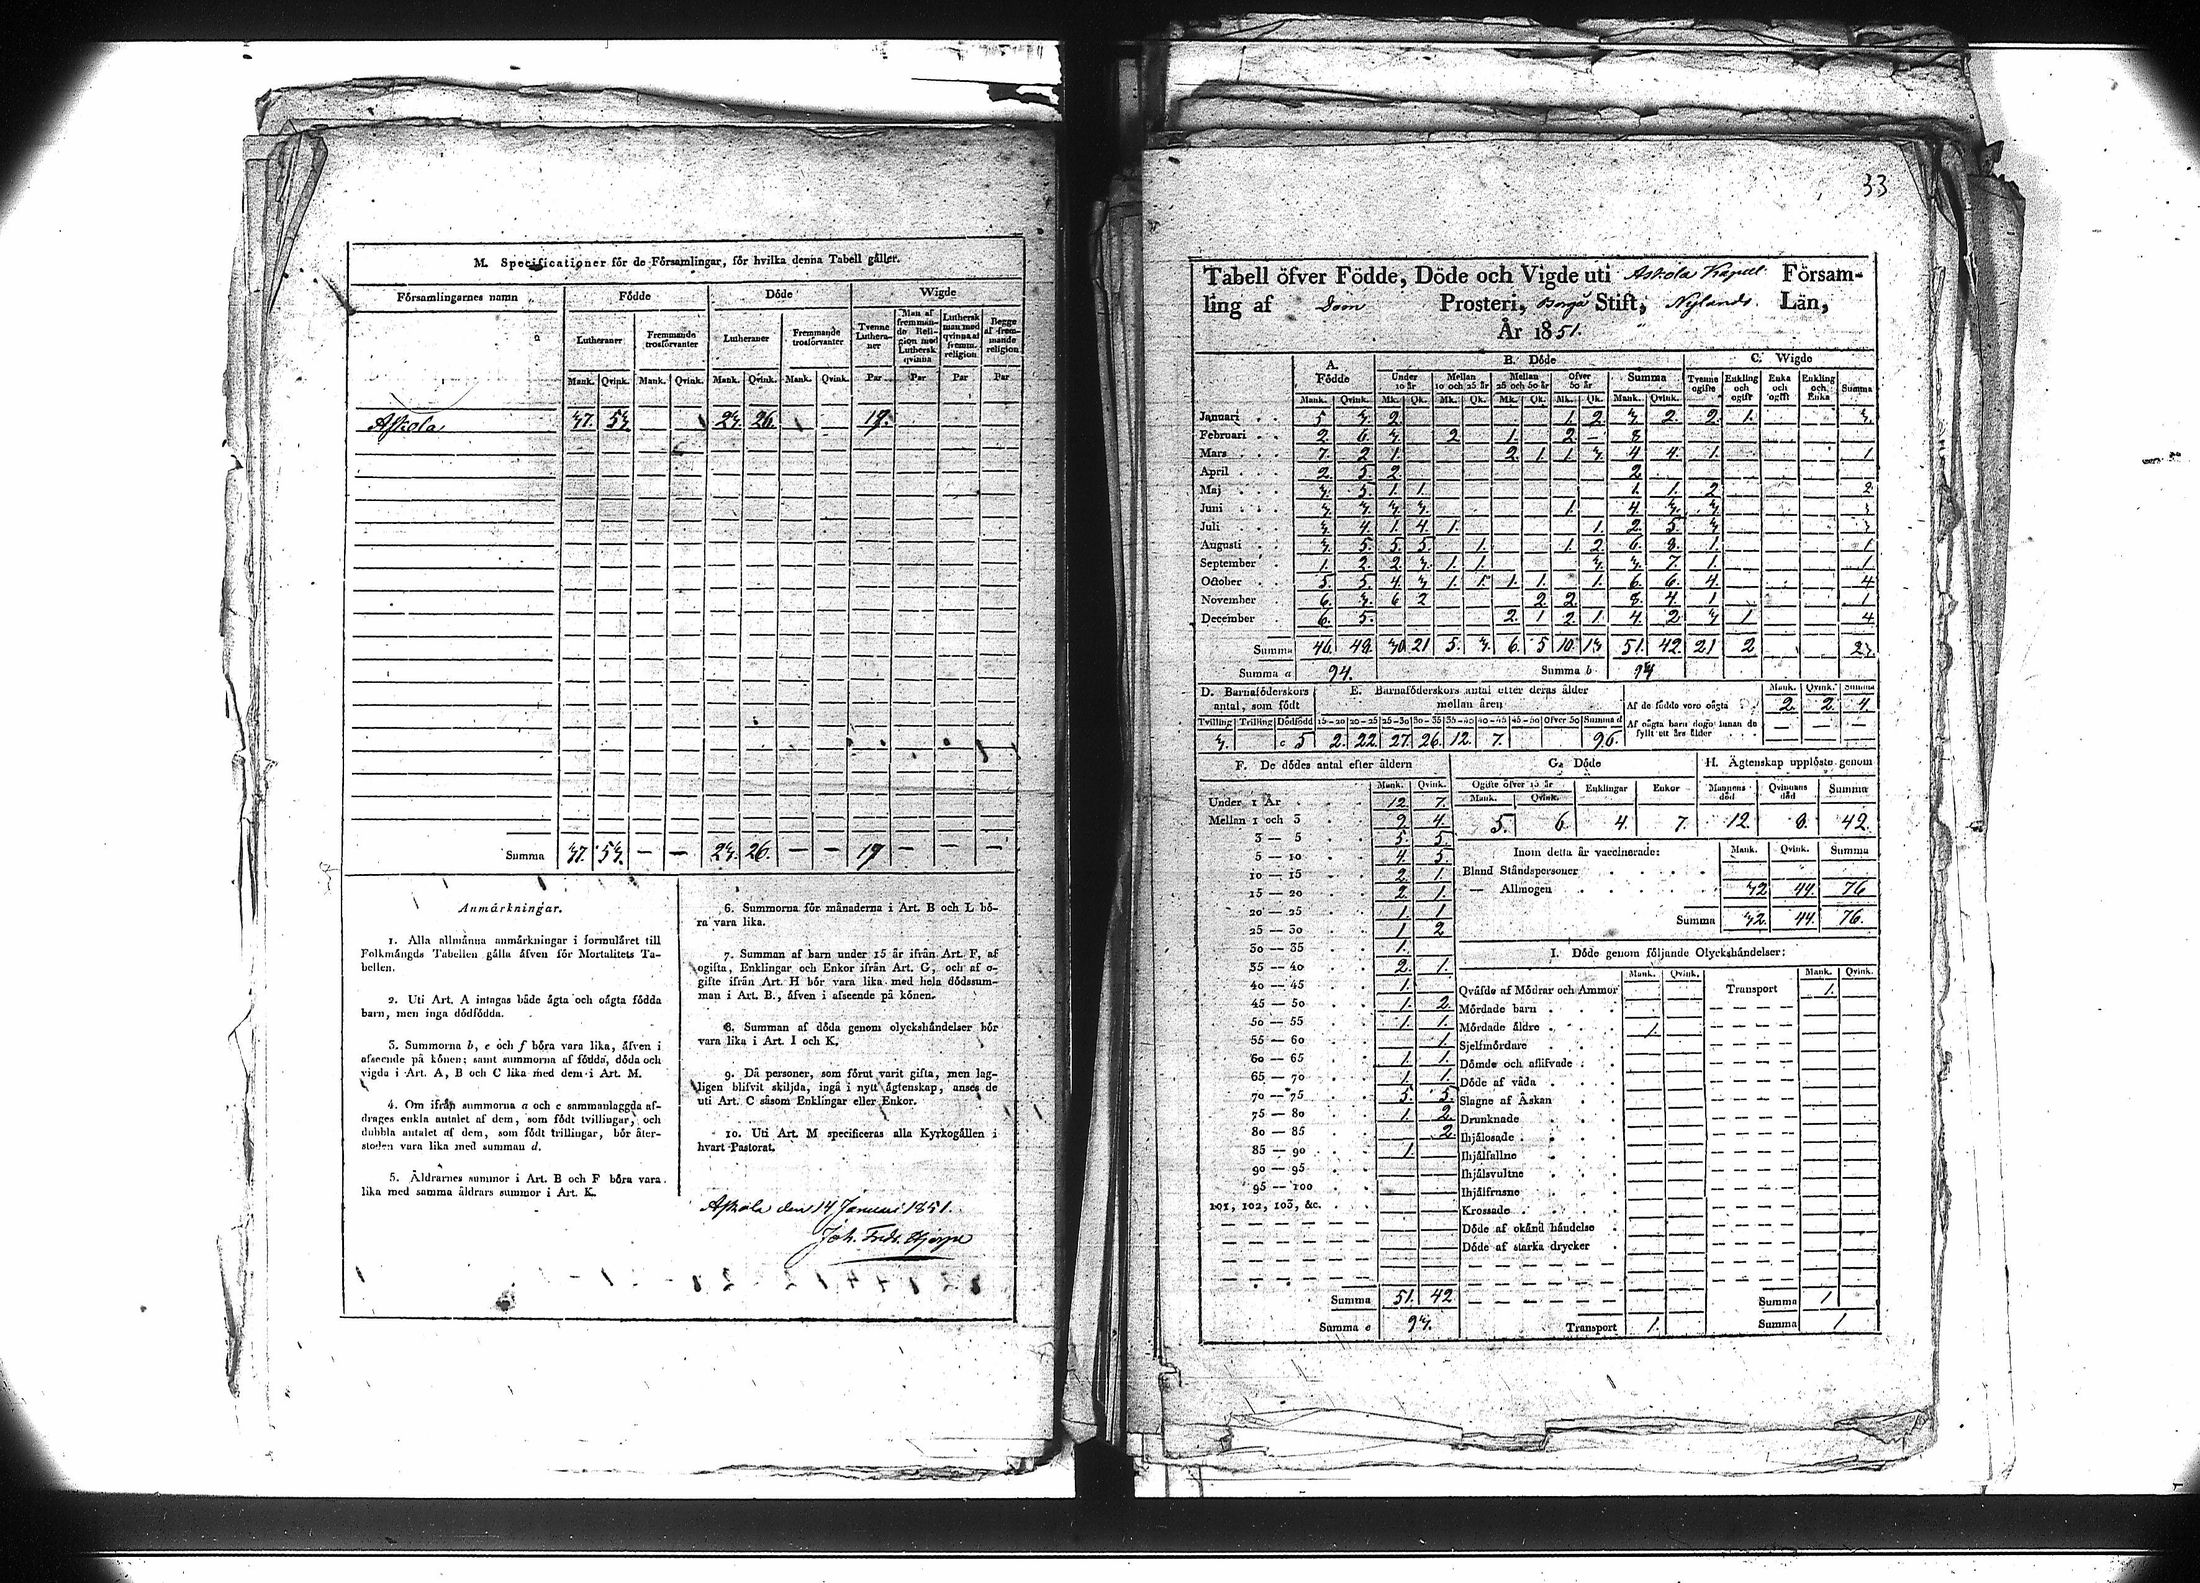 M. Specificationer för de Församlingar, för hvilka denna Tabell gäller.
Församlingarnes namn Födde Döde Wigde
Lutheraner Fremmande trosförvanter Lutheraner Fremmande trosförvanter Tvenne Lutheraner Man af fremmande Religion med Luthersk qvinna Luthersk man med qvinna af fremm. religion Begge af fremmande religion
Mank. Qvink. Mank. Qvink. Mank. Qvink. Mank. Qvink. Par Par Par Par
Askola 37. 53. 23. 26. 19.
Summa 37. 53. — — 23. 26. — — 19 — — —
Anmärkningar.
1. Alla allmänna anmärkningar i formuläret till
Folkmängds Tabellen gälla äfven för Mortalitets Ta-
bellen.
2. Uti Art. A intagas både ägta och oägta födda
barn, men inga dödfödda.
3. Summorna b, e och f böra vara lika, äfven i
afseende på könen; samt summorna af födda, döda och
vigda i Art. A, B och C lika med dem i Art. M.
4. Om ifrån summorna a och c sammanlaggda af-
drages enkla antalet af dem, som födt tvillingar, och
dubbla antalet af dem, som födt trillingar, bör åter-
stoden vara lika med summan d.
5. Äldrarnes summor i Art. B och F böra vara
lika med samma äldrars summor i Art. K.
6. Summorna för månaderna i Art. B och L bö-
ra vara lika.
7. Summan af barn under 15 år ifrån Art. F, af
ogifta, Enklingar och Enkor ifrån Art. G, och af o-
gifte ifrån Art. H bör vara lika med hela dödssum-
man i Art. B., äfven i afseende på könen.
8. Summan af döda genom olyckshändelser bör
vara lika i Art. I och K.
9. Då personer, som förut varit gifta, men lag-
ligen blifvit skiljda, ingå i nytt ägtenskap, anses de
uti Art. C såsom Enklingar eller Enkor.
10. Uti Art. M specificeras alla Kyrkogällen i
hvart Pastorat.
Askola den 14 Januari 1851.
Joh. Fredr.
33
Tabell öfver Födde, Döde och Vigde uti Askola Kapell Försam-
ling af Prosteri, Borgå Stift, Nylands Län,
År 1851.
A. Födde B. Döde C. Wigde
Under 10 år Mellan 10 och 25 år Mellan 25 och 50 år Öfver 50 år Summa Tvenne ogifte Enkling och ogift Enka och ogift Enkling och Enka Summa
Mank. Qvink. Mk. Qk. Mk. Qk. Mk. Qk. Mk. Qk. Mank. Qvink.
Januari 5 3 2 1 2 3 2 2 1 3
Februari 2 6 3 2 1 2 — 8
Mars 7 2 1 2 1 1 3 4 4 1 1
April 2 5 2 2
Maj 3 3 1 1 1 1 2 2
Juni 3 3 3 3 1 4 3 3 3
Juli 3 4 1 4 1 1 2 5 3 3
Augusti 3 5 5 5 1 1 2 6 8 1 1
September 1 2 2 3 1 1 3 3 7 1 1
October 5 5 4 3 1 1 1 1 1 6 6 4 4
November 6 3 6 2 2 2 8 4 1 1
December 6 5 2 1 2 1 4 2 3 1 4
Summa 46. 48. 30 21 5. 3. 6. 5 10. 13 51. 42 21 2 23.
Summa a 94. Summa b 93
D. Barnaföderskors antal, som födt E. Barnaföderskors antal efter deras ålder mellan åren
Tvilling Trilling Dödfödd 15–20 20–25 25–30 30–35 35–40 40–45 45–50 Öfver 50 Summa d
3. c 5 2. 22. 27. 26. 12. 7. 96.
Mank. Qvink. Summa
Af de födde voro oägta 2. 2. 4
Af oägta barn dogo innan de fyllt ett års ålder — — —
F. De dödes antal efter åldern
Mank. Qvink.
Under 1 År 12 7.
Mellan 1 och 3 9 4.
3 — 5 5. 5.
5 — 10 4. 5.
10 — 15 2. 1.
15 — 20 2. 1.
20 — 25 1. 1
25 — 30 1 2
30 — 35 1.
35 — 40 2. 1.
40 — 45 1.
45 — 50 1. 2.
50 — 55 1. 1.
55 — 60 1.
60 — 65 1. 1.
65 — 70 1. 1.
70 — 75 5 5.
75 — 80 1. 2.
80 — 85 2.
85 — 90 1.
90 — 95
95 — 100
101, 102, 103, &c.
Summa 51. 42
Summa e 93.
G. Döde
Ogifte öfver 15 år Enklingar Enkor
Mank. Qvink.
5. 6. 4. 7.
H. Ägtenskap upplöste genom
Mannens död Qvinnans död Summa
12. 8. 42.
Inom detta år vaccinerade: Mank. Qvink. Summa
Bland Ståndspersoner
— Allmogen 32 44. 76
Summa 32. 44. 76.
I. Döde genom följande Olyckshändelser:
Mank. Qvink. Mank. Qvink.
Qväfde af Mödrar och Ammor Transport 1.
Mördade barn
Mördade äldre 1.
Sjelfmördare
Dömde och aflifvade
Döde af våda
Slagne af Åskan
Drunknade
Ihjälosade
Ihjälfallne
Ihjälsvultne
Ihjälfrusne
Krossade
Döde af okänd händelse
Döde af starka drycker
Summa 1
Transport 1. Summa 1